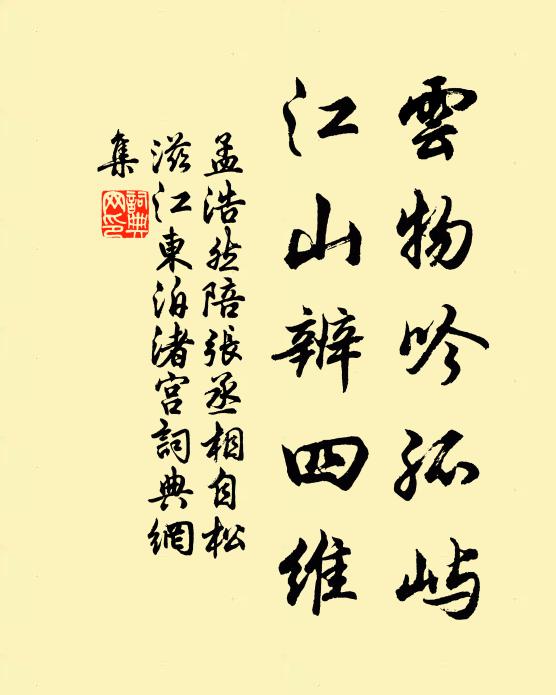 雲物吟孤嶼
江山辨四維
孟浩然陪張丞相自松
滋江東泊渚宮詞典網
集
詞典
网印